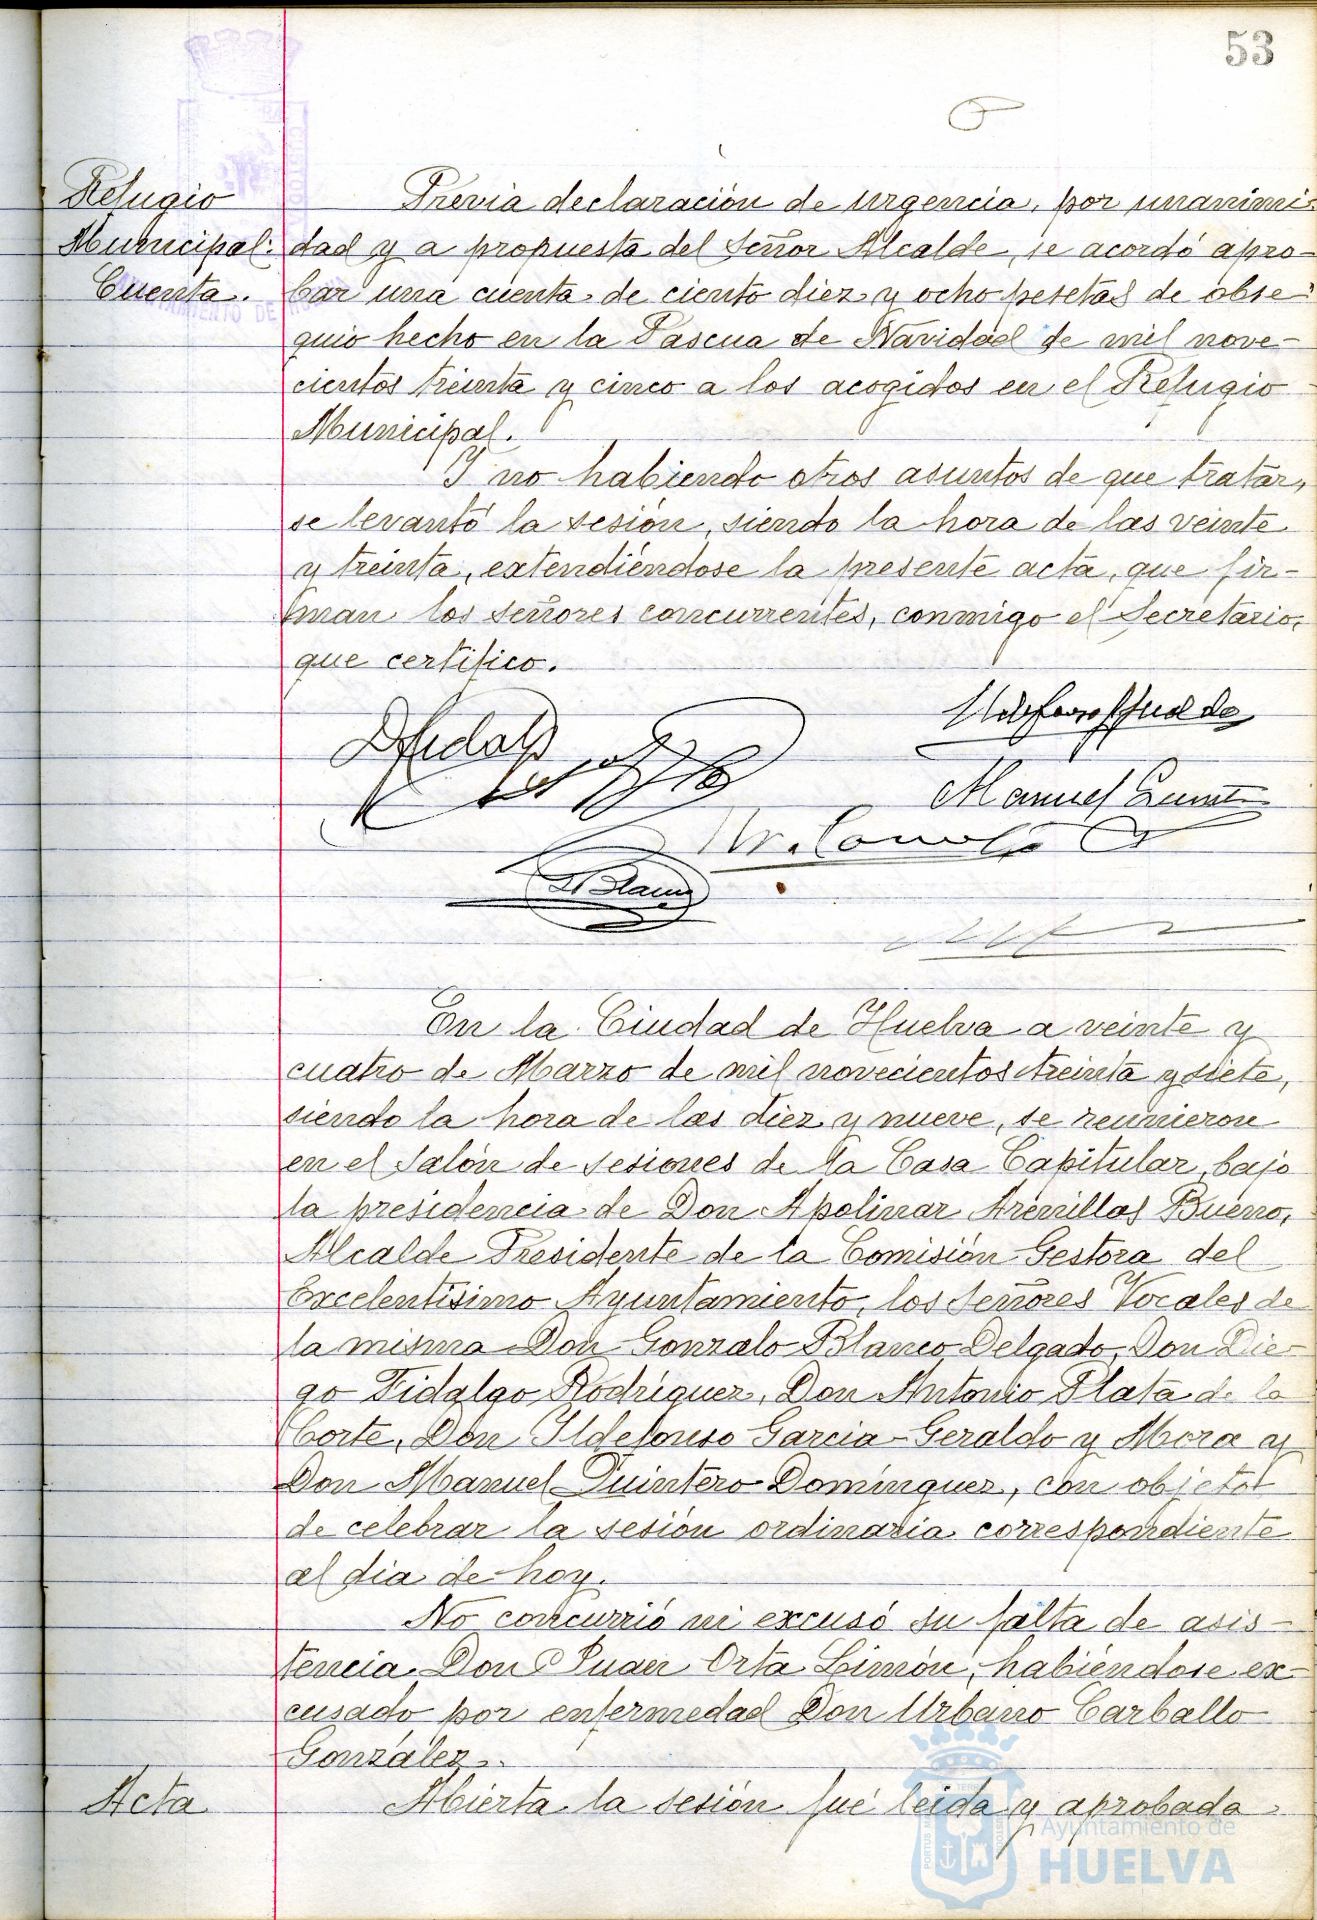 53
Refugio
Municipal:
Cuenta.
Previa declaración de urgencia, por unanimi-
dad y a propuesta del Señor Alcalde, se acordó apro-
bar una cuenta de ciento diez y ocho pesetas de obse-
quio hecho en la Pascua de Navidad de mil nove-
cientos treinta y cinco a los acogidos en el Refugio
Municipal.
Y no habiendo otros asuntos de que tratar,
se levantó la sesión, siendo la hora de las veinte
y treinta, extendiéndose la presente acta, que fir-
man los señores concurrentes, conmigo el Secretario,
que certifico.
Manuel
Blanco
En la Ciudad de Huelva a veinte y
cuatro de Marzo de mil novecientos treinta y siete,
siendo la hora de las diez y nueve, se reunieron
en el salón de sesiones de la Casa Capitular, bajo
la presidencia de Don Apolinar Arenillas Bueno,
Alcalde Presidente de la Comisión Gestora del
Excelentisimo Ayuntamiento, los Señores Vocales de
la misma Don Gonzalo Blanco Delgado, Don Die-
go Fidalgo Rodríguez, Don Antonio Plata de la
Corte, Don Ildefonso Garcia-Geraldo y Mora y
Don Manuel Quintero Domínguez, con objeto
de celebrar la sesión ordinaria correspondiente
al dia de hoy.
No concurrió ni excusó su falta de asis-
tencia Don Juan Orta Limón, habiéndose ex-
cusado por enfermedad Don Urbano Carballo
González.
Acta
Abierta la sesión fué leida y aprobada
Ayuntamiento de
HUELVA